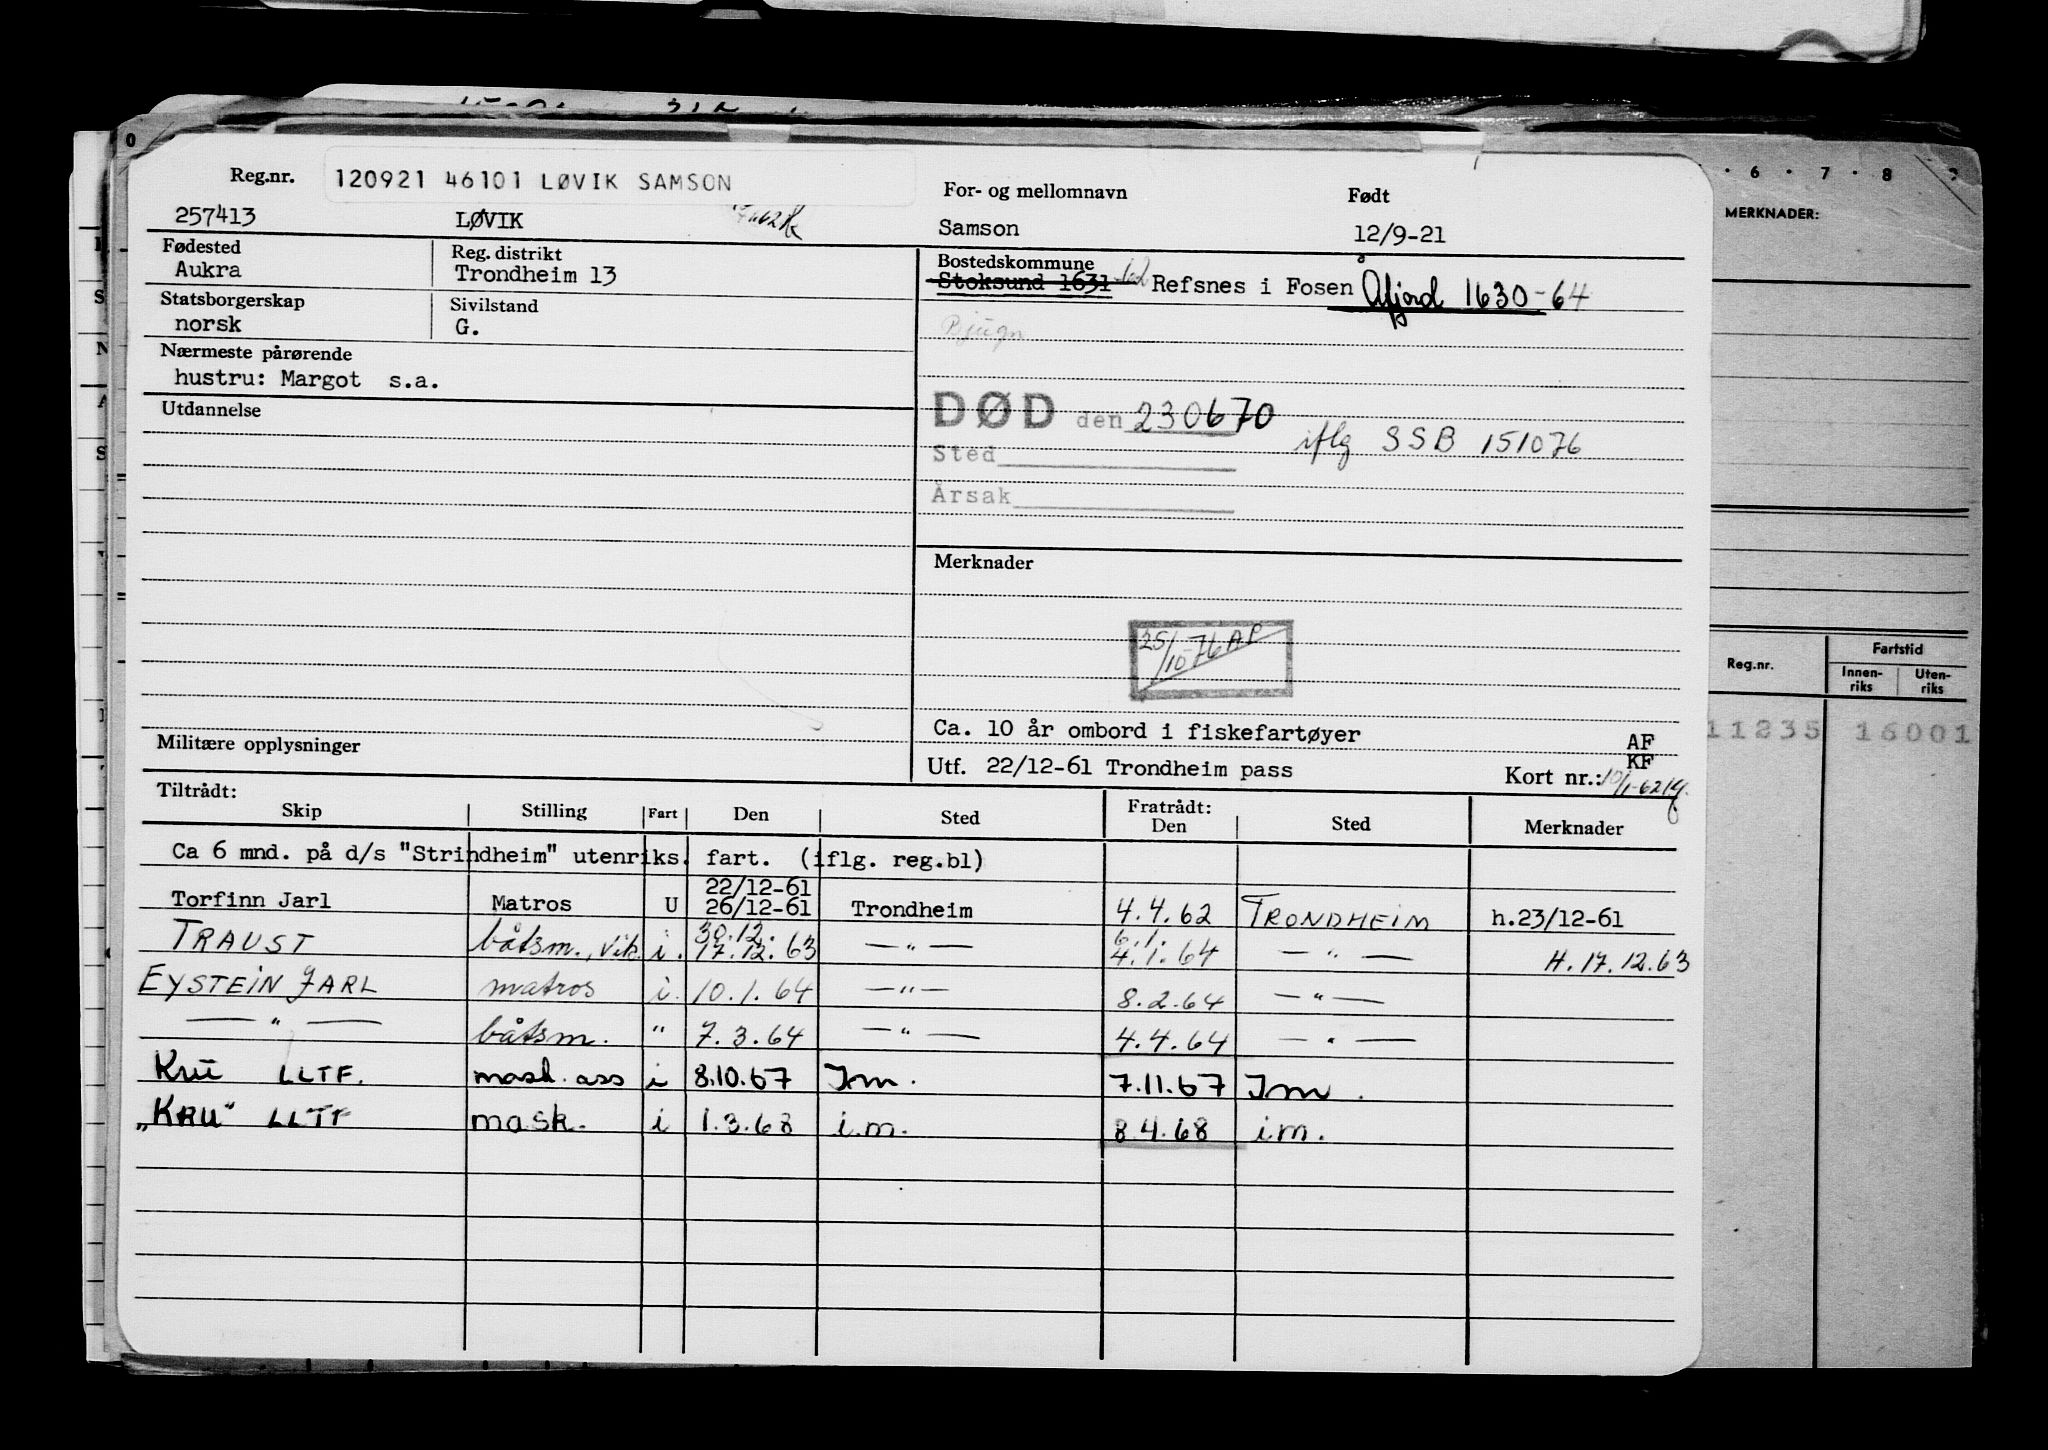 0
Reg.nr. 120921 46101 LØVIK SAMSON
For- og mellomnavn Født
257413 LØVIK Samson 12/9-21
Fødested Reg. distrikt Bostedskommune
Aukra Trondheim 13 Stoksund 1631 -62 Refsnes i Fosen Åfjord 1630-64
Statsborgerskap Sivilstand
norsk G. Bjugn
Nærmeste pårørende
hustru: Margot s.a.
Utdannelse
DØD den 230670 iflg SSB 151076
Sted
Årsak
Merknader
25/10-76 AP
Ca. 10 år ombord i fiskefartøyer AF
Militære opplysninger KF
Utf. 22/12-61 Trondheim pass Kort nr.: 10/1-62
Tiltrådt: Fratrådt:
Skip Stilling Fart Den Sted Den Sted Merknader
Ca 6 mnd. på d/s "Strindheim" utenriks. fart. (iflg. reg.bl)
22/12-61
Torfinn Jarl Matros U 26/12-61 Trondheim 4.4.62 TRONDHEIM h.23/12-61
30.12. 6.1.
TRAUST båtsm., vik. i. 17.12.63 — " — 4.1.64 — " — H. 17.12.63
EYSTEIN JARL matros i. 10.1.64 — " — 8.2.64 — " —
— " — båtsm. " 7.3.64 — " — 4.4.64 — " —
KRU LLTF. mask. ass i 8.10.67 Im. 7.11.67 Im.
„KRU" LLTF mask. i 1.3.68 i.m. 8.4.68 i.m.
6 7 8
MERKNADER:
Reg.nr. Fartstid
Innen-riks Uten-riks
11235 16001